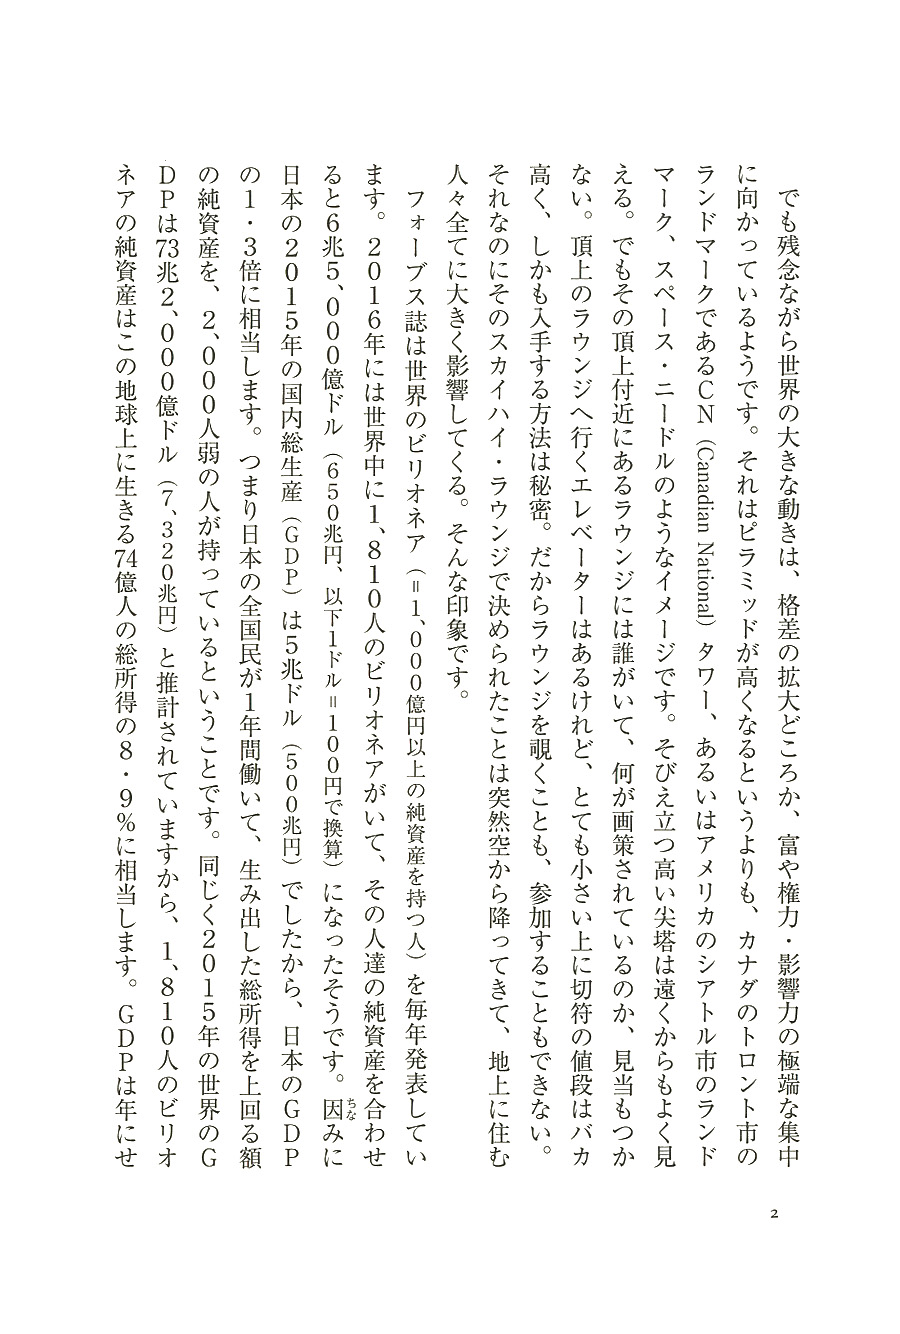 でも残念ながら世界の大きな動きは、格差の拡大どころか、富や権力・影響力の極端な集中
に向かっているようです。それはピラミッドが高くなるというよりも、カナダのトロント市の
ランドマークであるCN（Canadian National）タワー、あるいはアメリカのシアトル市のランド
マーク、スペース・ニードルのようなイメージです。そびえ立つ高い尖塔は遠くからもよく見
える。でもその頂上付近にあるラウンジには誰がいて、何が画策されているのか、見当もつか
ない。頂上のラウンジへ行くエレベーターはあるけれど、とても小さい上に切符の値段はバカ
高く、しかも入手する方法は秘密。だからラウンジを覗くことも、参加することもできない。
それなのにそのスカイハイ・ラウンジで決められたことは突然空から降ってきて、地上に住む
人々全てに大きく影響してくる。そんな印象です。
フォーブス誌は世界のビリオネア（＝１、０００億円以上の純資産を持つ人）を毎年発表してい
ます。２０１６年には世界中に１、８１０人のビリオネアがいて、その人達の純資産を合わせ
ると６兆５、０００億ドル（６５０兆円、以下１ドル＝１００円で換算）になったそうです。因ちなみに
日本の２０１５年の国内総生産（ＧＤＰ）は５兆ドル（５００兆円）でしたから、日本のＧＤＰ
の１・３倍に相当します。つまり日本の全国民が１年間働いて、生み出した総所得を上回る額
の純資産を、２、０００人弱の人が持っているということです。同じく２０１５年の世界のＧ
ＤＰは73兆２、０００億ドル（７、３２０兆円）と推計されていますから、１、８１０人のビリオ
ネアの純資産はこの地球上に生きる74億人の総所得の８・９％に相当します。ＧＤＰは年にせ
2